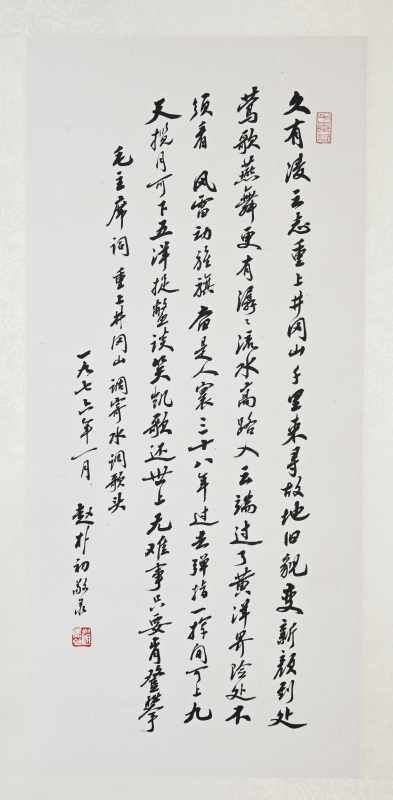 久有凌云志重上井冈山千里来寻故地旧貌变新颜到处
莺歌燕舞更有潺〻流水高路入云端过了黄洋界险处不
须看 风雷动旌旗奋是人寰三十八年过去弹指一挥间可上九
天揽月可下五洋捉鳖谈笑凯歌还世上无难事只要肯登攀
毛主席词 重上井冈山 调寄水调歌头
一九七六年一月 赵朴初敬录